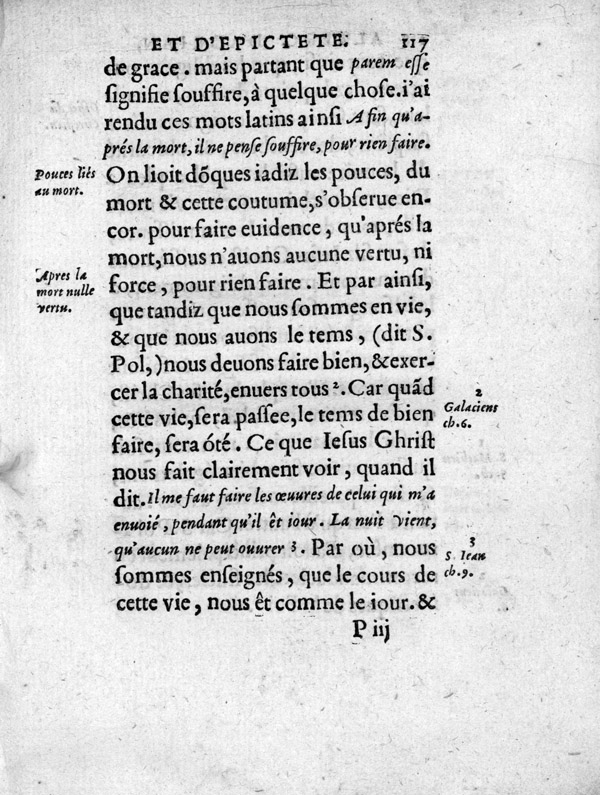 ET D'EPICTETE. 117
de grace. mais partant que parem esse
signifie souffire, à quelque chose. i'ai
rendu ces mots latins ainsi Afin qu'a-
prés la mort, il ne pense souffire, pour rien faire.
Pouces liés
au mort.
On lioit dõques iadiz les pouces, du
mort & cette coutume, s'obserue en-
cor. pour faire euidence, qu'aprés la
mort, nous n'auons aucune vertu, ni
Apres la
mort nulle
vertu.
force, pour rien faire. Et par ainsi,
que tandiz que nous sommes en vie,
& que nous auons le tems, (dit S.
Pol,) nous deuons faire bien, & exer-
cer la charité, enuers tous 2. Car quãd
2
Galaciens
ch. 6.
cette vie, sera passee, le tems de bien
faire, sera óté. Ce que Iesus Ghrist
nous fait clairement voir, quand il
dit. Il me faut faire les œuures de celui qui m'a
enuoié, pendant qu'il êt iour. La nuit vient,
qu'aucun ne peut ouurer 3. Par où, nous
3
S. Iean
ch. 9.
sommes enseignés, que le cours de
cette vie, nous êt comme le iour. &
P iij